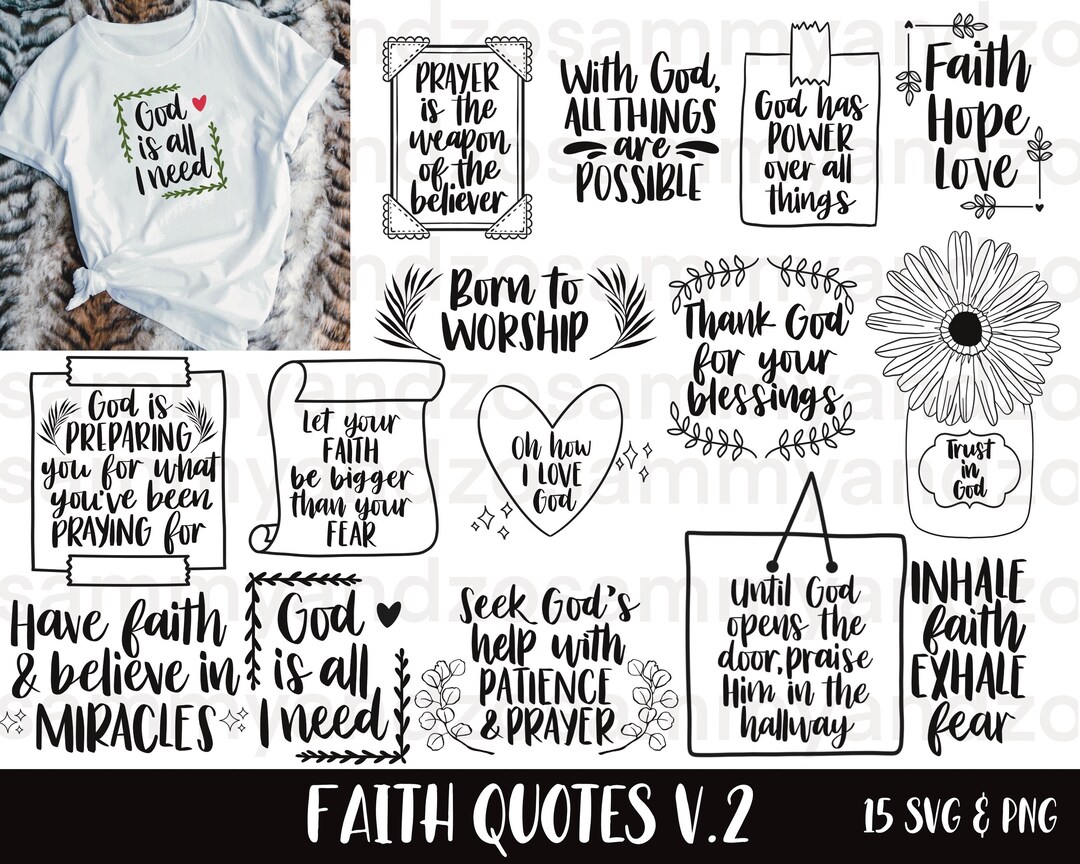 God
is all
I need
PRAYER
is the
weapon
of the
believer
With God,
ALL THINGS
are
POSSIBLE
God has
POWER
over all
things
Faith
Hope
Love
Born to
WORSHIP
Thank God
for your
blessings
Trust
in
God
God is
PREPARING
you for what
you've been
PRAYING for
Let your
FAITH
be bigger
than your
FEAR
Oh how
I LOVE
God
Have faith
& believe in
MIRACLES
God
is all
I need
Seek God's
help with
PATIENCE
& PRAYER
Until God
opens the
door, praise
Him in the
hallway
INHALE
faith
EXHALE
fear
FAITH QUOTES V.2
15 SVG & PNG
sammyandzo